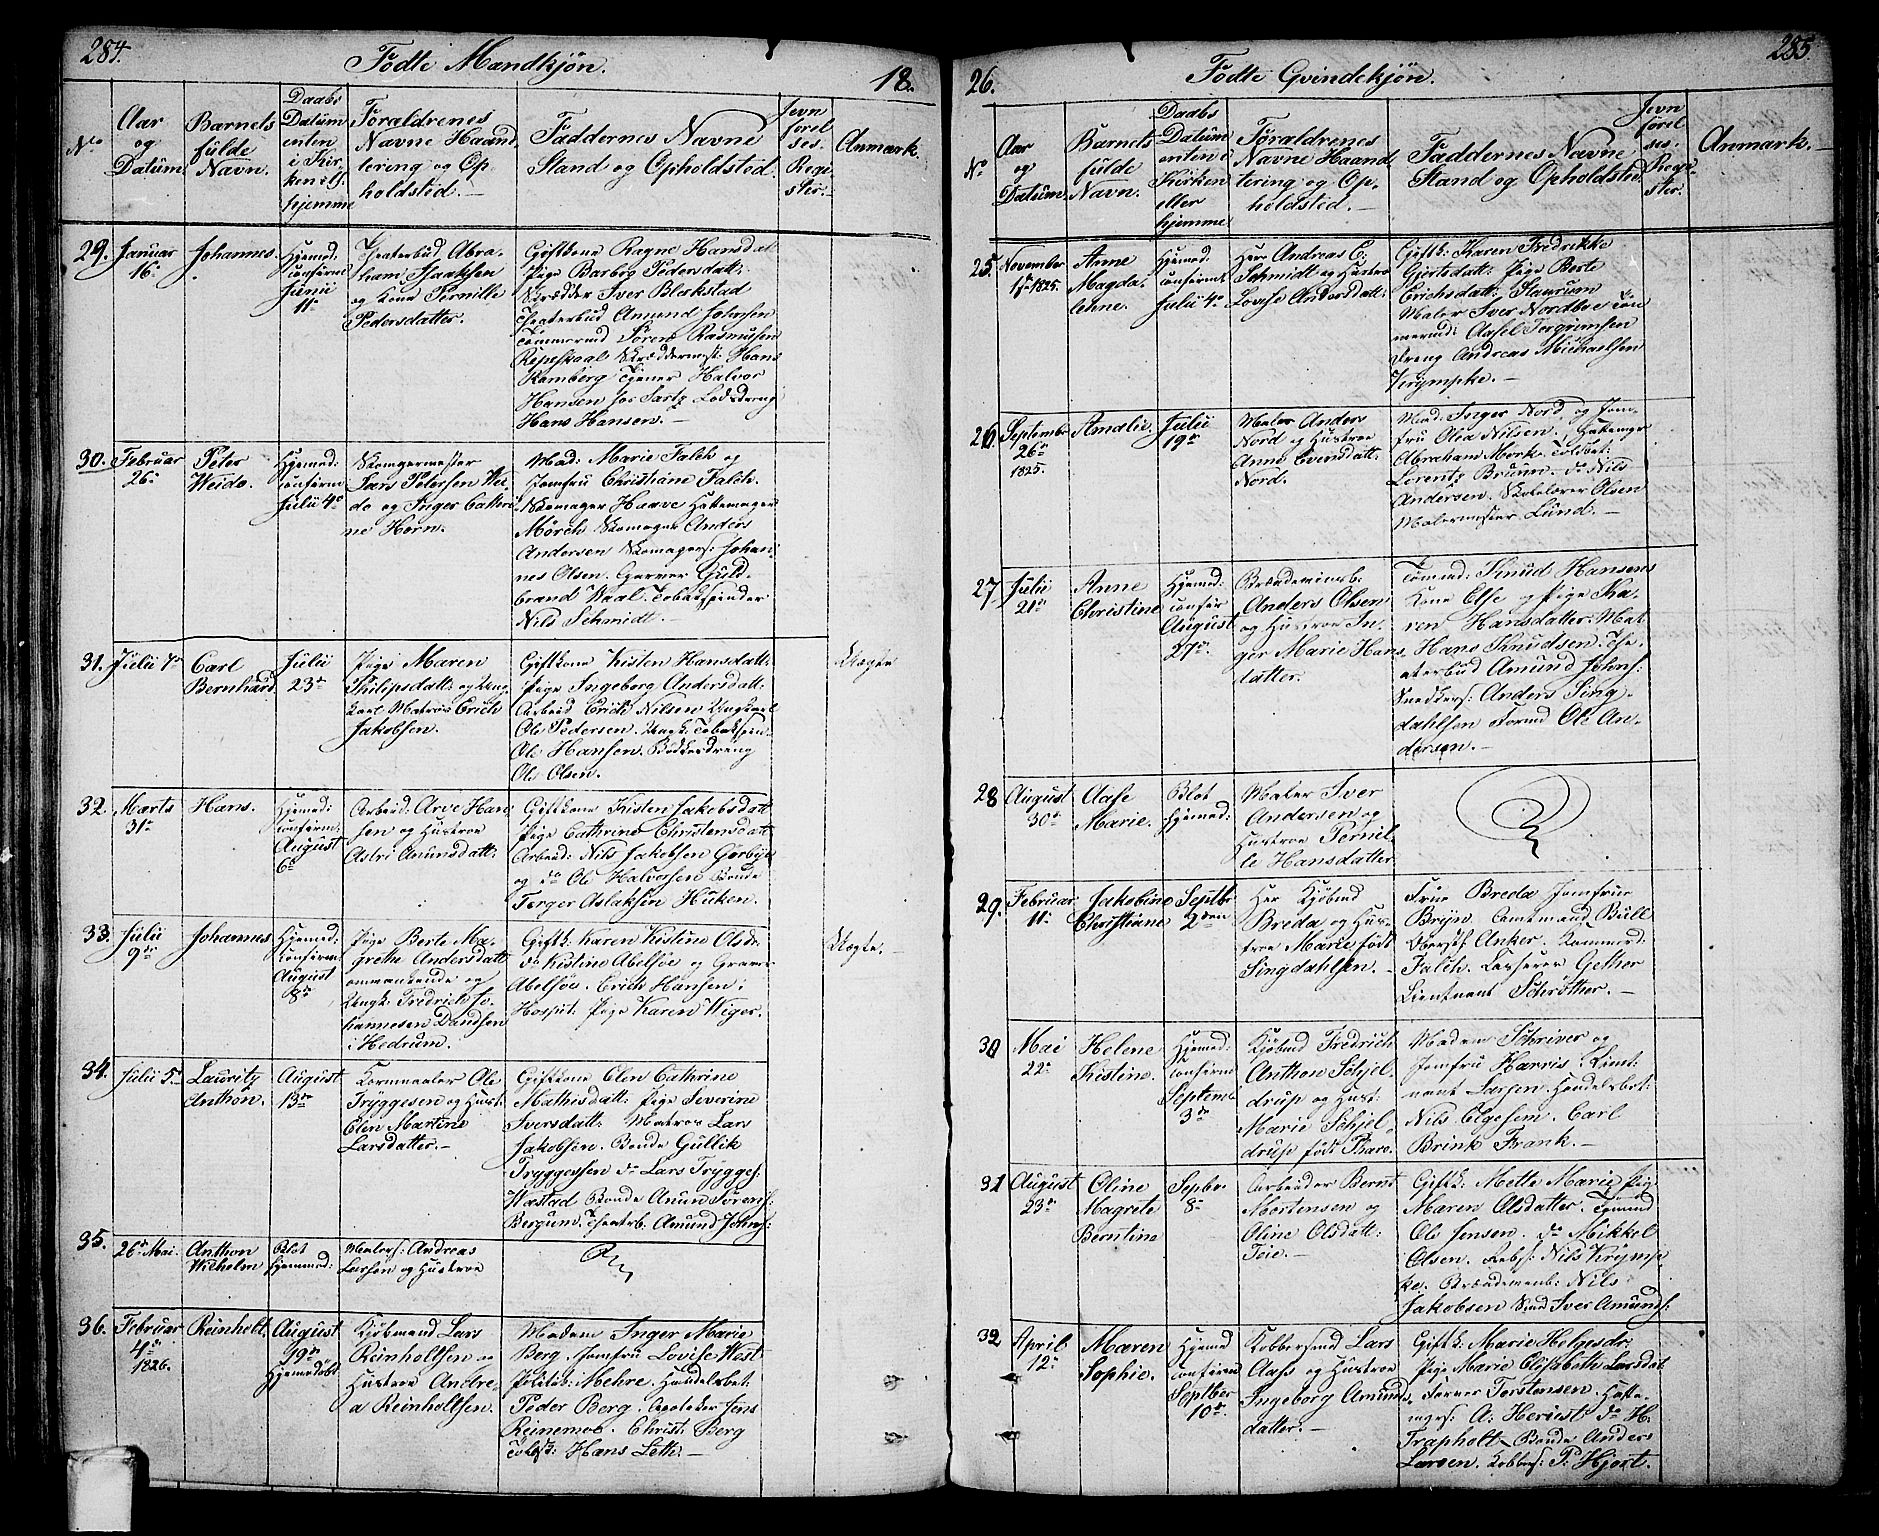 284.
Fødte Mandkjøn.
18.
No
Aar
og
Datum.
Barnets
fulde
Navn.
Daabs
Datum
enten
i Kir
ken ell.
hjemme
Foraldrenes
Navne Haand
tering og Op-
holdsted. —
Faddernes Navne
Stand og Opholdsted.
Jevn
førel
ses.
Regi
ster. —
Anmark.
29. Januar
16de
Johannes.
Hjemed:
confirm
Junii
11te
Theaterbud Abra-
ham Isaaksen
og Kone Pernille
Pedersdatter.
Giftkone Ragne Hansdat
Pige Barbog Pedersdatt:
Skrædder Iver Blekstad
Theaterbud Amund Johnsen
Tømmermd Søren Rasmusen
Skræddermst: Hans
Ramberg Tjener Halvor
Hansen hos Sartz Lodsdreng
Hans Hansen. —
30. Februar
26de
Peter
Weido.
Hjemed:
confirm
Julii 4de
Skomagermester
Lars Petersen Wei-
do og Inger Catteri
ne Horn.
Mad: Marie Falch og
Jomfru Christiane Falch.
Skomager Haave Hattemager
Mörch Skomager Anders
Andersen Skomagers: Johan-
nes Olsen. Garver Guld-
brand Waal. Tobakspinder
Nils Schmidt. —
31. Julii 7de
Carl
Bernhard
Julii
23de
Pige Maren
Philipsdatt: og Ung-
karl Matros Erich
Jakobsen.
Giftkone Kisten Hansdatt:
Pige Ingeborg Andersdatt:
Arbeid Erich Nilsen Ungkarl
Ole Pedersen. Ungk: Tobakspin-
Ole Hansen. Bødkerdreng
Ole Olsen.
Uægte
32. Marts
31te
Hans.
Hjemed:
confirm:
August
6te
Arbeid. Arve Han
sen og Hustroe
Astri Amunsdatt:
Giftkone Kisten Jakobsdatt
Pige Cathrine Christensdatt
Arbeid: Nils Jakobsen Gorbye
og do Ole Halvorsen Bonde
Torger Aslaksen Huken.
33. Julii
9de
Johannes
Hjemed:
Confirm:
August
8de
Pige Berte Ma-
grethe Andersdatt
ommankende og
Ungk. Fredrich Jo-
hannesen Dandsen
i Hedrum.
Giftk. Karen Kistine Olsdr.
do Kistine Abelsøe og Graver
Abelsøe. Erich Hansen i
Hospit: Pige Karen Wiger.
Uægte.
34. Julii 5te
Lauritz
Anthon.
August
13de
Kornmaaler Ole
Tryggesen og Hust:
Elen Martine
Larsdatter. —
Giftkone Elen Cathrine
Mathisdatt: Pige Severine
Iversdatt: Matros Lars
Jakobsen. Bonde Gullik
Tryggessen do Lars Trygges:
Wæstad Bonde Amun Sørens:
Bergum. Theaterb. Amund Johns:
35. 26de Mai.
Anthon
Wilhelm
Blot
hjemmed:
Malers: Andreas
Larsen og Hustroe
36. Februar
4de
1826.
Reinholt.
August
19de
Hjemedøbt
Kjøbmand Lars
Reinholtsen og
Hustroe Andre-
a Reinholtsen.
Madam Inger Marie
Berg. Jomfru Lovise West
Politib: Mehre. Handelsbet:
Peder Berg. Apoteker Jens
Reinemoe. Christ: Berg
Toldsk: Hans Leth: —
285.
26.
Fødte Qvindekjøn.
No
Aar
og
Datum.
Barnets
fulde
Navn.
Daabs
Datum
enten i
Kirken
eller
hjemme
Foraldrenes
Navne Haand
tering og Op-
holdsted. —
Faddernes Navne
Stand og Opholdsted
Jevn
førel
ses.
Regi-
ster:
Anmark. —
25. November
17de 1825.
Anne
Magda-
lehne.
Hjemed:
confirmt
Julii 4de
Herr Andreas C:
Schmidt og Hustroe
Lovise Andersdatt:
Giftk: Karen Fredrikke
Gjertsdatt: Pige Berte
Erichsdatt: Staurum
Maler Iver Nordboe Tøm
mermd: Aasel Torgrimsen
Dreng Andreas Michaelsen
Krympke. —
26. Septembr
26de
1825.
Amalie.
Julii
19de
Maler Anders
Nord og Hustroe
Anne Evensdatt:
Nord.
Mad: Inger Nord og Jom-
fru Olea Nilsen. Hattemgr
Abraham Mork. Toldbet:
Lorentz Bruun. do Nils
Andersen. Skolelærer Olsen
Malermester Lund. —
27 Julii
21de
Anne
Christine
Hjemed:
confir
August
27de.
Brændevinsb:
Anders Olsen
og Hustroe In-
ger Marie Hans
datter.
Tømmd: Knud Hansens
Kone Else og Pige Ka-
ren Hansdatter: Mat
Hans Knudsen. The-
aterbud Amund Johns:
Snedkers: Anders Sing-
dahlsen Formd Ole An-
dersen. —
28 August
30te
Aase
Marie.
Blot
hjemed:
Maler Iver
Andersen og
Hustroe Pernil-
le Hansdatter
29. Februar
11te
Jakobine
Christiane
Septbr
2den
Her Kjöbmd
Breda og Hus-
troe Marie født
Singdahlsen. —
Frue Breda Jomfrue
Bryn. Amtmand Bull
Oberstl: Anker. Kammerd:
Falch. Kasserer Gether
Lieutnant Schrötter. —
30 Mai
22de
Helene
Kistine.
Hjemed:
confirm
Septemb.
3de
Kjøbmd Fredrich
Anthon Schjel-
drup og Hust:
Marie Schjel-
drup født Paro.
Madam Schriver og
Jomfru Harris. Lieut-
nant Larsen. Handelsbet:
Nils Elgesem. Carl
Brink Frank. —
31 August
23de
Oline
Magrete
Berntine
Sepbr
8de
Arbeider Bernt
Mortensen og
Oline Olsdatt:
Teie. —
Giftk: Mette Marie Pig-
Maren Olsdatter. Tømmd
Ole Jensen. do Mikkel
Olsen. Rebs: Nils Krymp-
ke. Brændevinsb: Nils
Jakobsen Smd Iver Amunds:
32 April
12te
Maren
Sophie.
Hjemd
confirm
Septber
10de
Kobbersmd Lars
Aass og Hustroe
Ingeborg Amunds
datter. —
Giftk: Marie Helgesdr.
Pige Marie Elizabeth Larsdat
Farver Torstensen. Hatte-
mgrs: A: Heriest do H.
Trapholt. Bonde Anders
Larsen. Kobbers: P: Hjort.